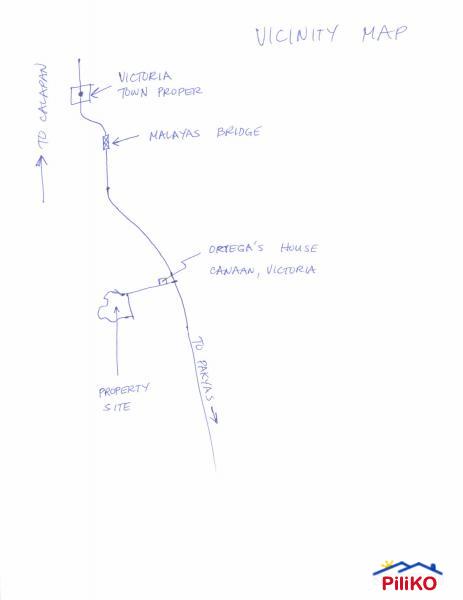 VICINITY MAP
TO CALAPAN
VICTORIA
TOWN PROPER
MALAYAS BRIDGE
ORTEGA'S HOUSE
CANAAN, VICTORIA
PROPERTY
SITE
TO PAKYAS
PiliKO